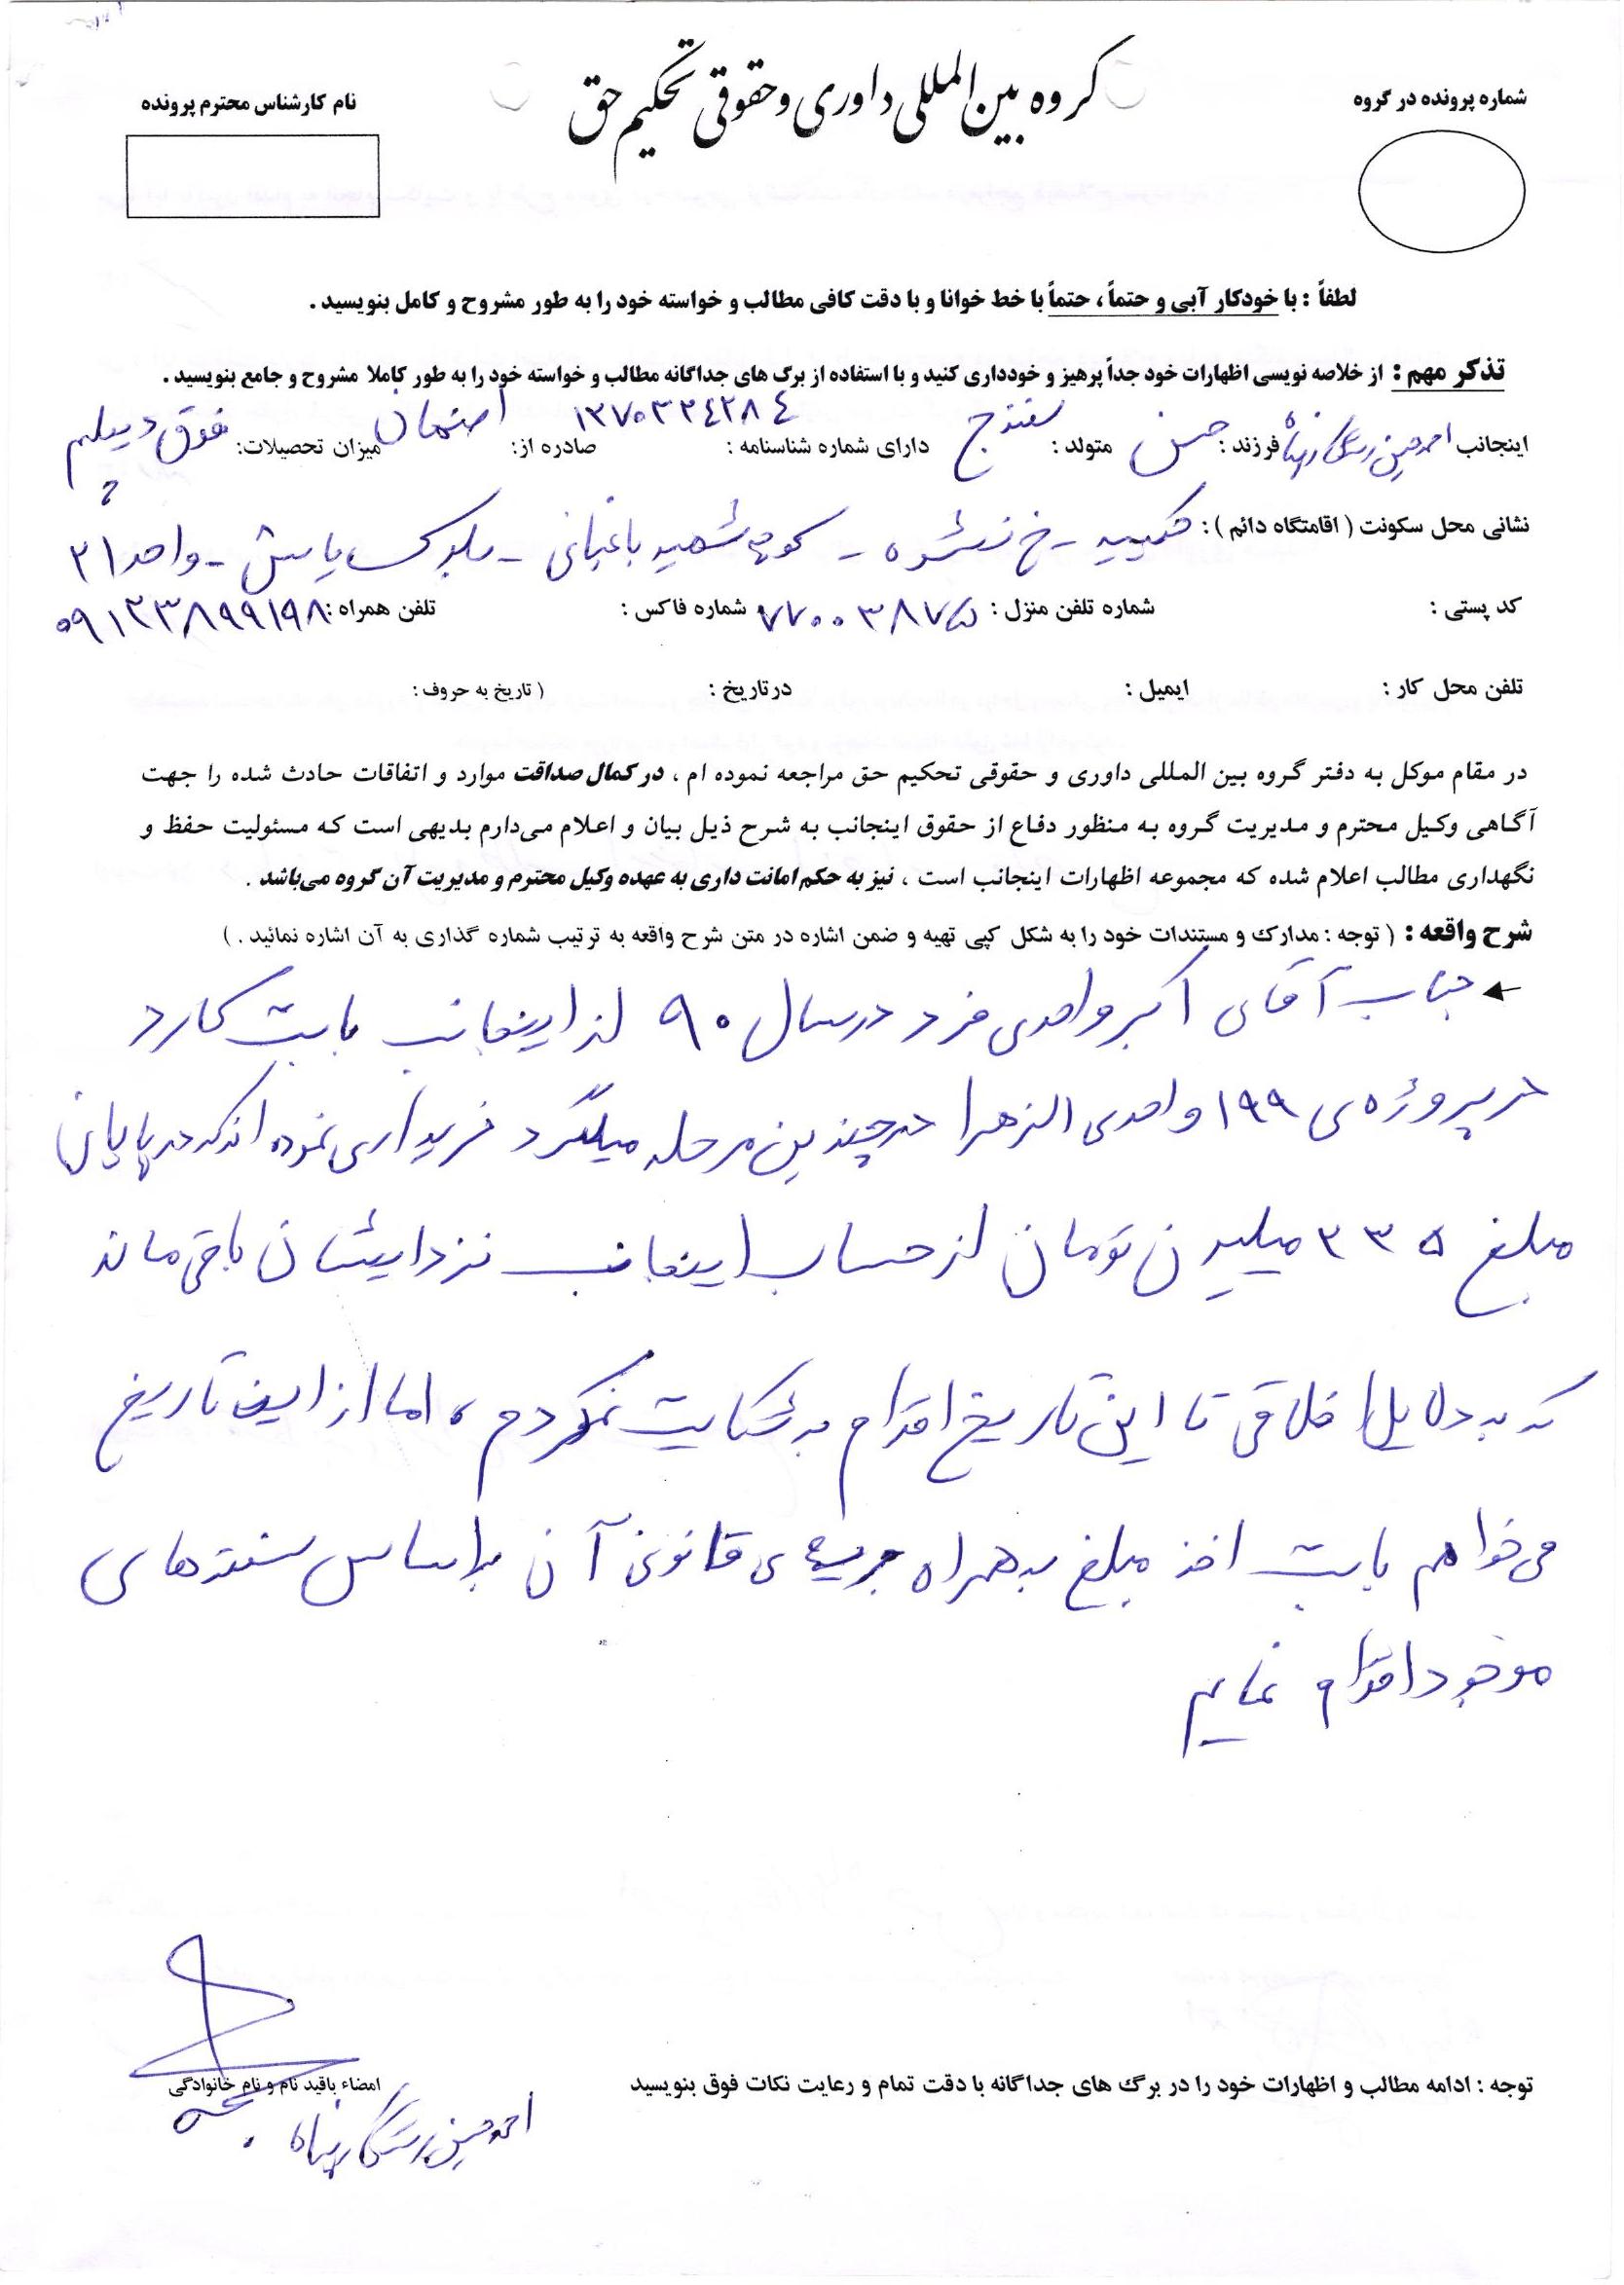 گروه بین المللی داوری و حقوقی تحکیم حق
شماره پرونده در گروه
نام کارشناس محترم پرونده
لطفاً : با خودکار آبی و حتماً ، حتماً با خط خوانا و با دقت کافی مطالب و خواسته خود را به طور مشروح و کامل بنویسید .
تذکر مهم : از خلاصه نویسی اظهارات خود جداً پرهیز و خودداری کنید و با استفاده از برگ های جداگانه مطالب و خواسته خود را به طور کاملا مشروح و جامع بنویسید .
اینجانب احمدحسین رستگارپناه فرزند : حسن متولد : سنندج دارای شماره شناسنامه : صادره از: میزان تحصیلات: فوق دیپلم
نشانی محل سکونت ( اقامتگاه دائم ) : حکیمیه - خ - کوچه شهید باغبانی - بلوک یاس - واحد ۲۱
کد پستی : شماره تلفن منزل : شماره فاکس : تلفن همراه : ۰۹۱۲۳۸۹۹۱۹۸
تلفن محل کار : ایمیل : درتاریخ : ( تاریخ به حروف :
در مقام موکل به دفتر گروه بین المللی داوری و حقوقی تحکیم حق مراجعه نموده ام ، در کمال صداقت موارد و اتفاقات حادث شده را جهت
آگاهی وکیل محترم و مدیریت گروه به منظور دفاع از حقوق اینجانب به شرح ذیل بیان و اعلام می‌دارم بدیهی است که مسئولیت حفظ و
نگهداری مطالب اعلام شده که مجموعه اظهارات اینجانب است ، نیز به حکم امانت داری به عهده وکیل محترم و مدیریت آن گروه می‌باشد .
شرح واقعه : ( توجه : مدارک و مستندات خود را به شکل کپی تهیه و ضمن اشاره در متن شرح واقعه به ترتیب شماره گذاری به آن اشاره نمائید . )
جناب آقای اکبر واحدی فرد در سال ۹۰ از اینجانب بابت کارد
در پروژه ی ۱۹۹ واحدی الزهرا در چندین مرحله میلگرد خریداری نموده اند که در پایان
مبلغ ۳۳۵ میلیون تومان از حساب اینجانب نزد ایشان باقی ماند
که به دلایل اخلاقی تا این تاریخ اقدام به شکایت نکردم ، اما از این تاریخ
می خواهم بابت اخذ مبلغ به همراه جریمه ی قانونی آن براساس سفته های
موجود اقدام نمایم
توجه : ادامه مطالب و اظهارات خود را در برگ های جداگانه با دقت تمام و رعایت نکات فوق بنویسید
امضاء باقید نام و نام خانوادگی
احمدحسین رستگارپناه